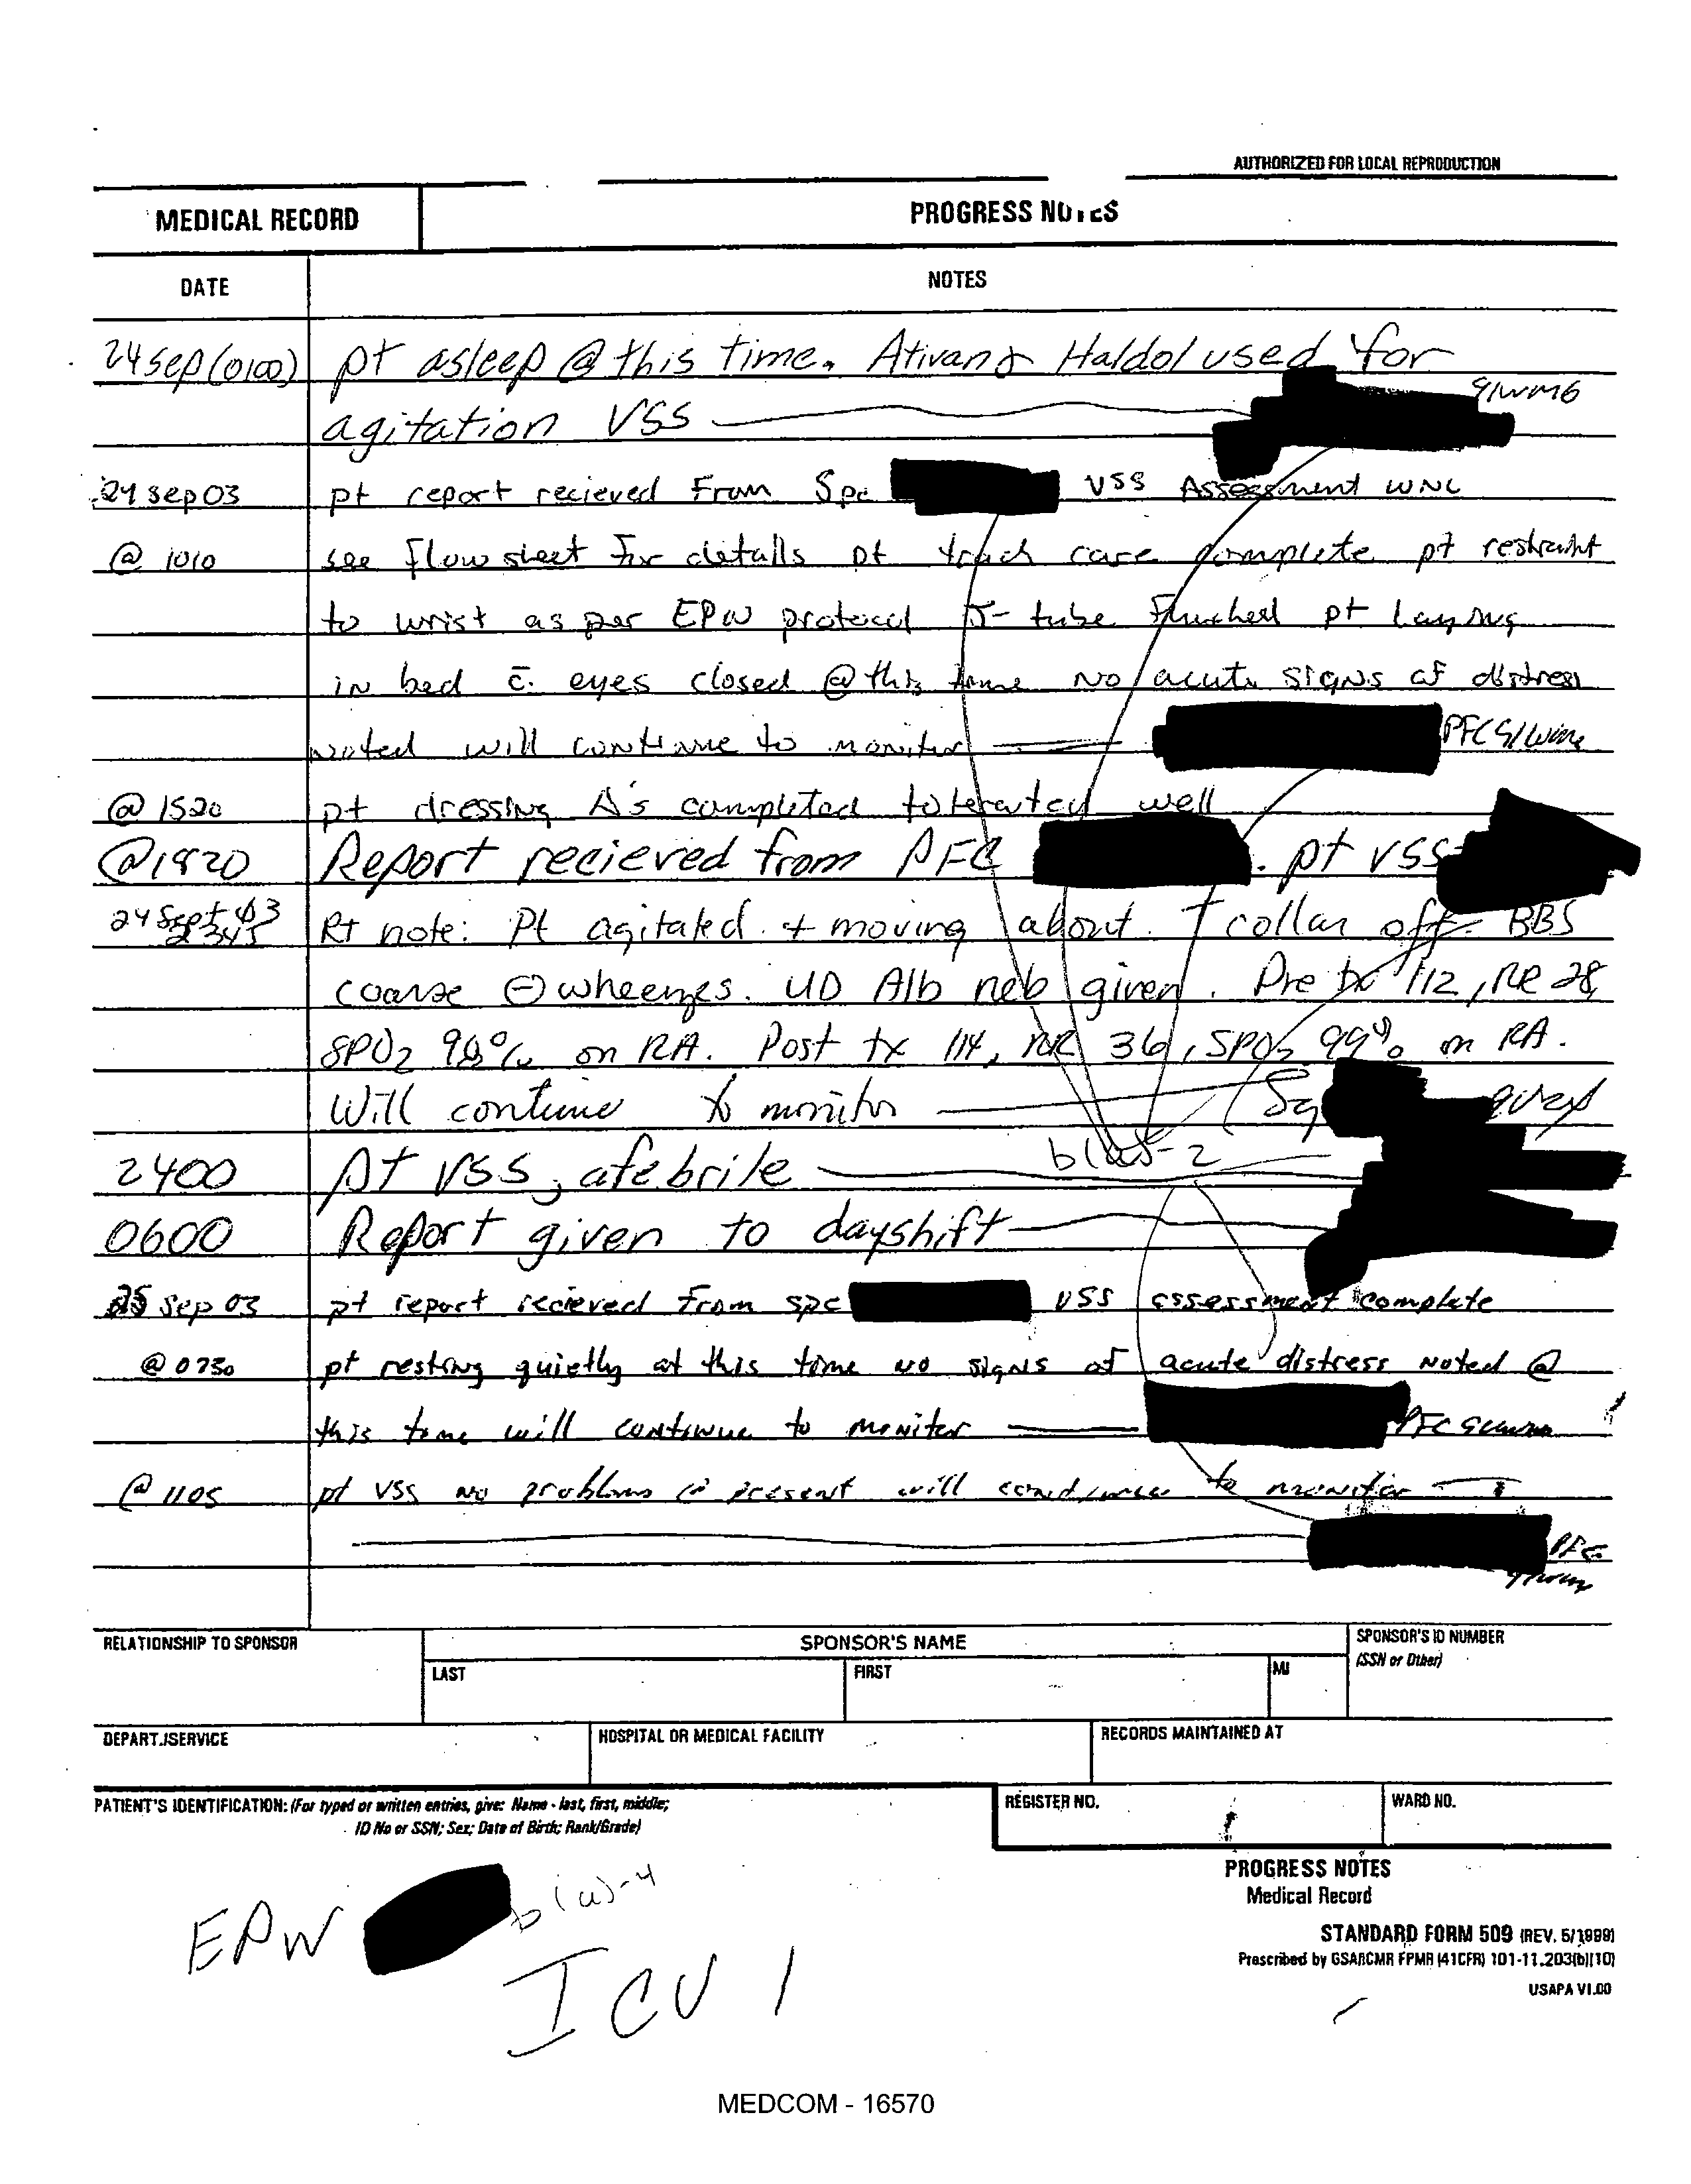 AUTHORIZED FOR LOCAL REPRODUCTION
MEDICAL RECORD
PROGRESS NOTES
DATE
NOTES
24 Sep (0100) pt asleep @ this time. Ativan & Haldol used for
91WM6
agitation VSS
24 sep 03 pt report recieved From Spc VSS Assessment WNL
@ 1010 see flow sheet for details pt trach care complete pt restraint
to wrist as per EPW protocol J-tube flushed pt laying
in bed c̄ eyes closed @ this time No acute signs of distress
noted will continue to monitor PFC 91WM6
@ 1520 pt dressing Δ's completed tolerated well
@1820 Report recieved from PFC . pt VSS
24 Sept 03
2345 Rt note: Pt agitated + moving about. T collar off. BBS
coarse ⊖ wheezes. UD Alb neb given. Pre tx 112, RR 28,
SPO2 98% on RA. Post tx 114, RR 36, SPO2 99% on RA.
Will continue to monitor
b(6)-2
2400 Pt VSS, afebrile
0600 Report given to dayshift
25 Sep 03 pt report recieved From spc VSS assessment complete
@ 0730 pt resting quietly at this time no signs of acute distress noted @
this time will continue to monitor PFC
@ 1105 pt VSS no problems @ present will continue to monitor
PFC
RELATIONSHIP TO SPONSOR
SPONSOR'S NAME
SPONSOR'S ID NUMBER
(SSN or Other)
LAST
FIRST
MI
DEPART./SERVICE
HOSPITAL OR MEDICAL FACILITY
RECORDS MAINTAINED AT
PATIENT'S IDENTIFICATION: (For typed or written entries, give: Name - last, first, middle;
ID No or SSN; Sex; Date of Birth; Rank/Grade)
REGISTER NO.
WARD NO.
EPW b(6)-4
ICU 1
PROGRESS NOTES
Medical Record
STANDARD FORM 509 (REV. 5/1999)
Prescribed by GSA/ICMR FPMR (41CFR) 101-11.203(b)(10)
USAPA V1.00
MEDCOM - 16570